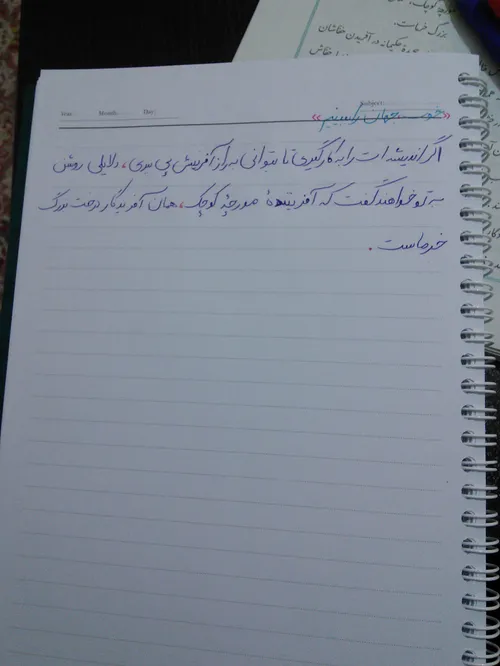 بزرگ خرماست.
در آفریدن خفاشان
Year: Month: Day: Subject:
«خوب جهان را ببینیم»
اگر اندیشه ات را به کارگیری تا بتوانی به راز آفرینش پی ببری، دلایلی روشن
به تو خواهند گفت که آفریننده مورچهٔ کوچک، همان آفریدگار درخت بزرگ
خرماست.